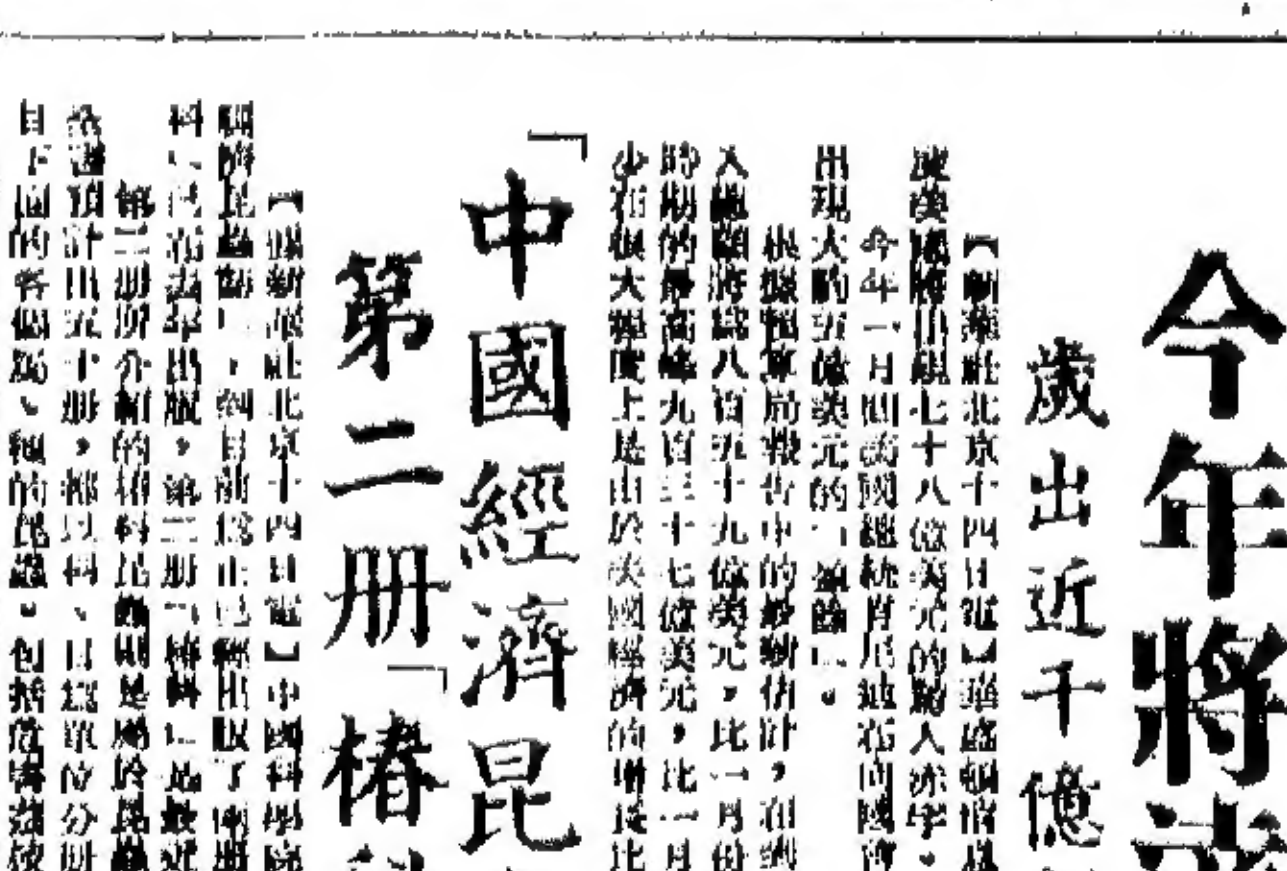 今年將
歲出近千億
【新華社北京十四日電】華盛頓消息
度美國將出現七十八億美元的驚人赤字。
今年一月間美國總統肯尼迪在向國會
出現大約五億美元的「盈餘」。
根據預算局報告中的最新估計，在到
入總額將爲八百五十九億美元，比一月份
時期的最高峰九百三十七億美元，比一月
少在很大程度上是由於美國經濟的增長比
「中國經濟昆
第二册「椿
【據新華社北京十四日電】中國科學院
國經濟昆蟲誌」，到目前爲止已經出版了兩册
科」已在去年出版，第二册「椿科」是最近
第二册所介紹的椿科昆蟲則是屬於昆蟲
預計出五十册，都以科、目爲單位分册
目下面的各個屬、種的昆蟲。包括危害